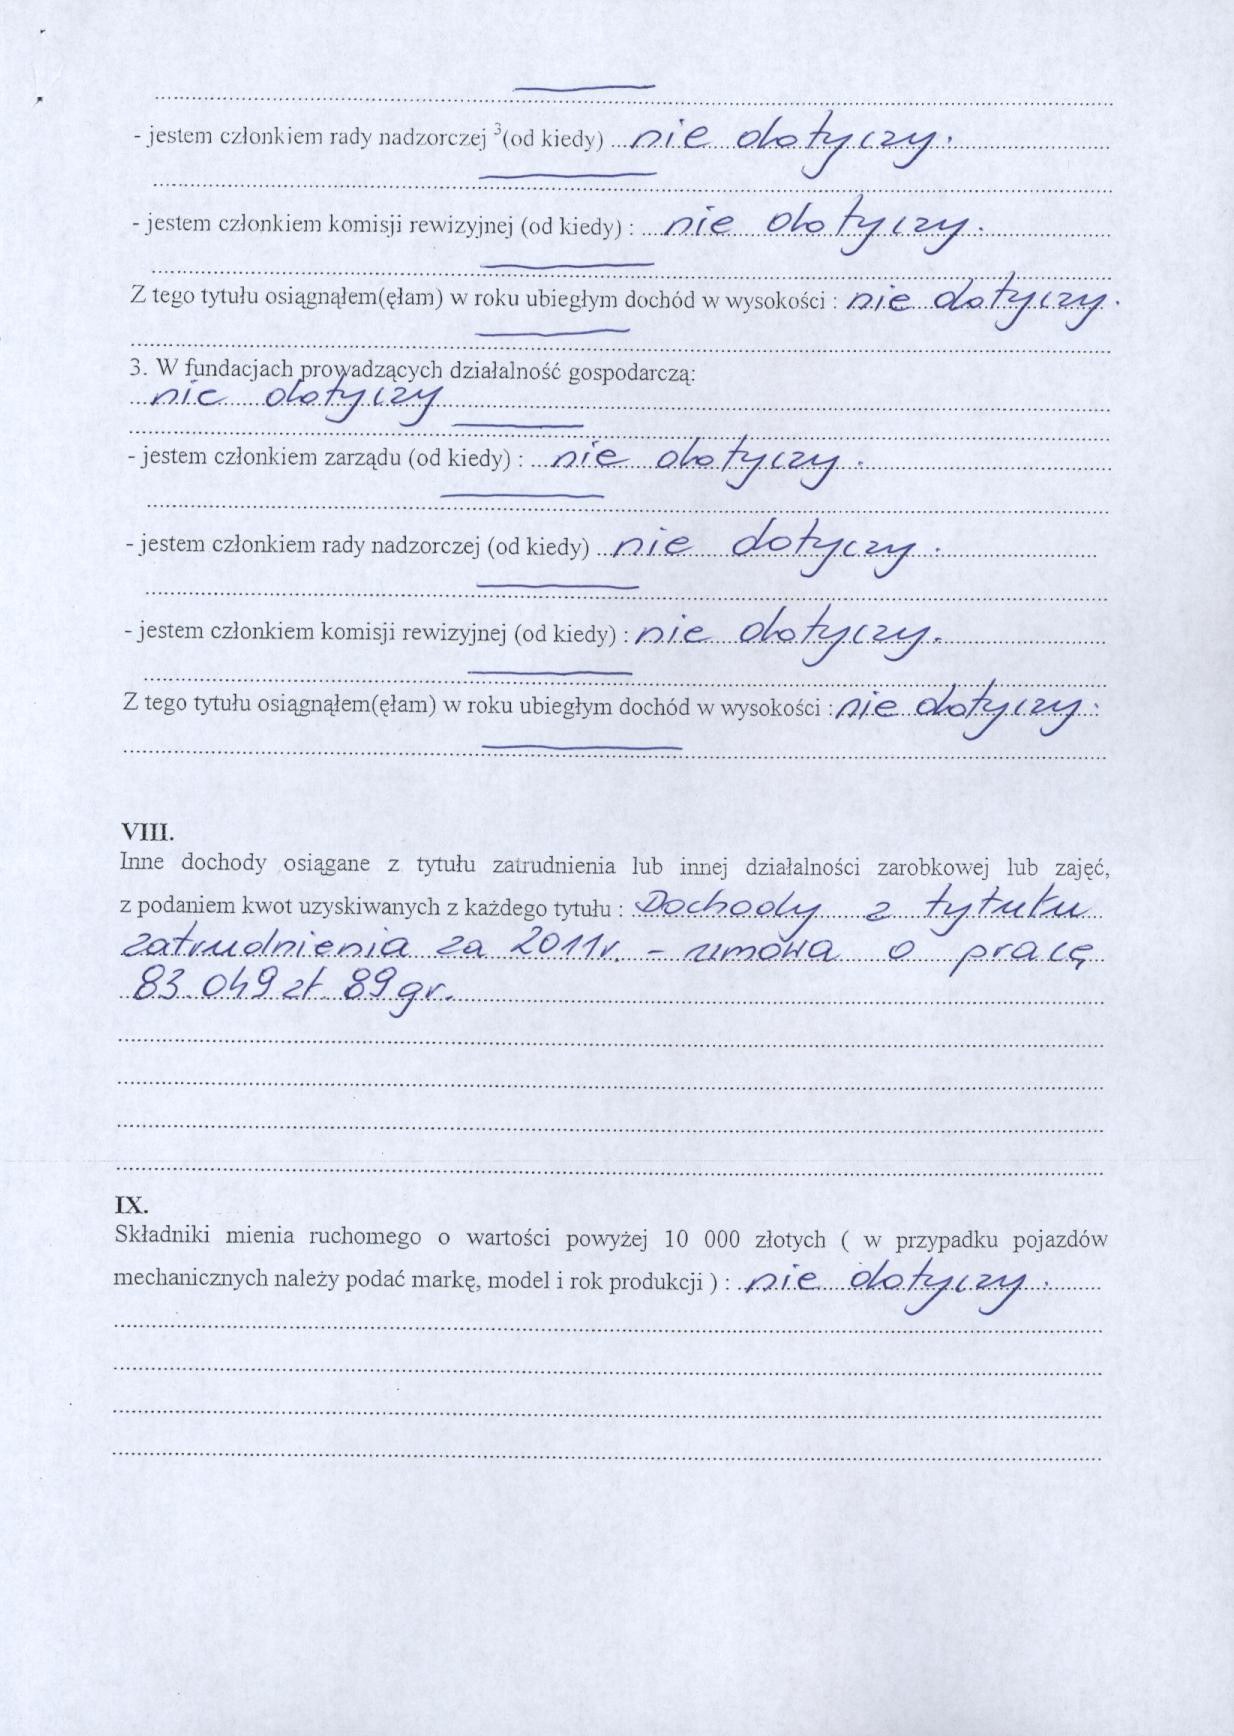 - jestem członkiem rady nadzorczej ³(od kiedy) ...nie dotyczy.
- jestem członkiem komisji rewizyjnej (od kiedy) : ...nie dotyczy.
Z tego tytułu osiągnąłem(ęłam) w roku ubiegłym dochód w wysokości : nie dotyczy.
3. W fundacjach prowadzących działalność gospodarczą:
nie dotyczy
- jestem członkiem zarządu (od kiedy) : ...nie dotyczy.
- jestem członkiem rady nadzorczej (od kiedy) ...nie dotyczy.
- jestem członkiem komisji rewizyjnej (od kiedy) : nie dotyczy.
Z tego tytułu osiągnąłem(ęłam) w roku ubiegłym dochód w wysokości : nie dotyczy.
VIII.
Inne dochody osiągane z tytułu zatrudnienia lub innej działalności zarobkowej lub zajęć,
z podaniem kwot uzyskiwanych z każdego tytułu : Dochody z tytułu
zatrudnienia za 2011r. - umowa o pracę
83.049 zł 89 gr.
IX.
Składniki mienia ruchomego o wartości powyżej 10 000 złotych ( w przypadku pojazdów
mechanicznych należy podać markę, model i rok produkcji ) : nie dotyczy.